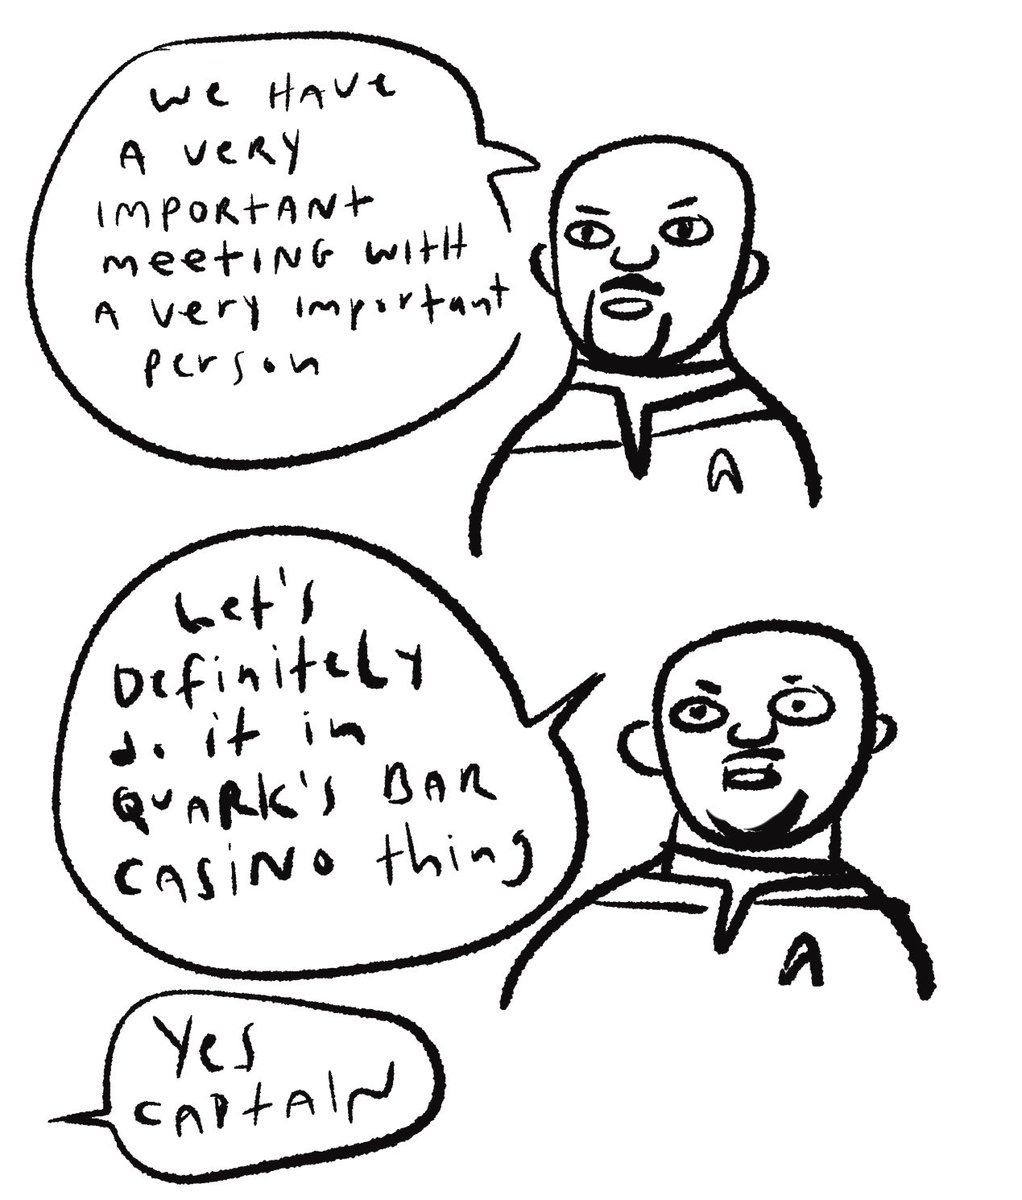 We HAve
A veRy
IMPORtANt
meetING WItH
A very Important
person
Let's
DefiniteLy
do it in
QuARk's BAR
CASiNo thing
Yes
CAPtAIN